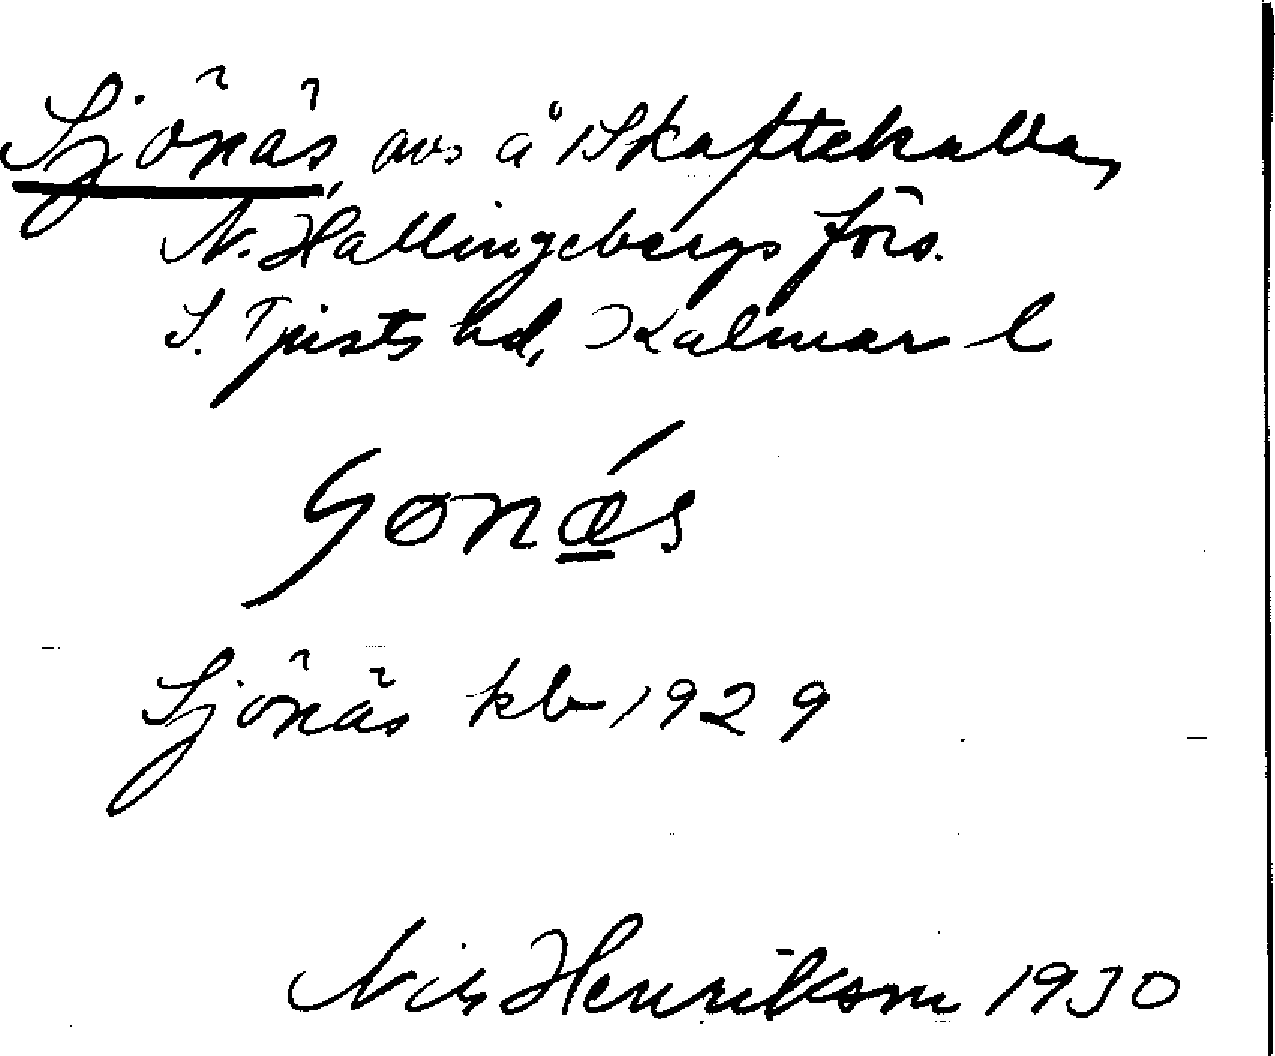 Sjönäs, avs å Skaftekulla,
N. Hallingebergs förs.
S. Tjusts hd, Kalmar l
Sjönäs kb 1929
Nils Henrikson 1930